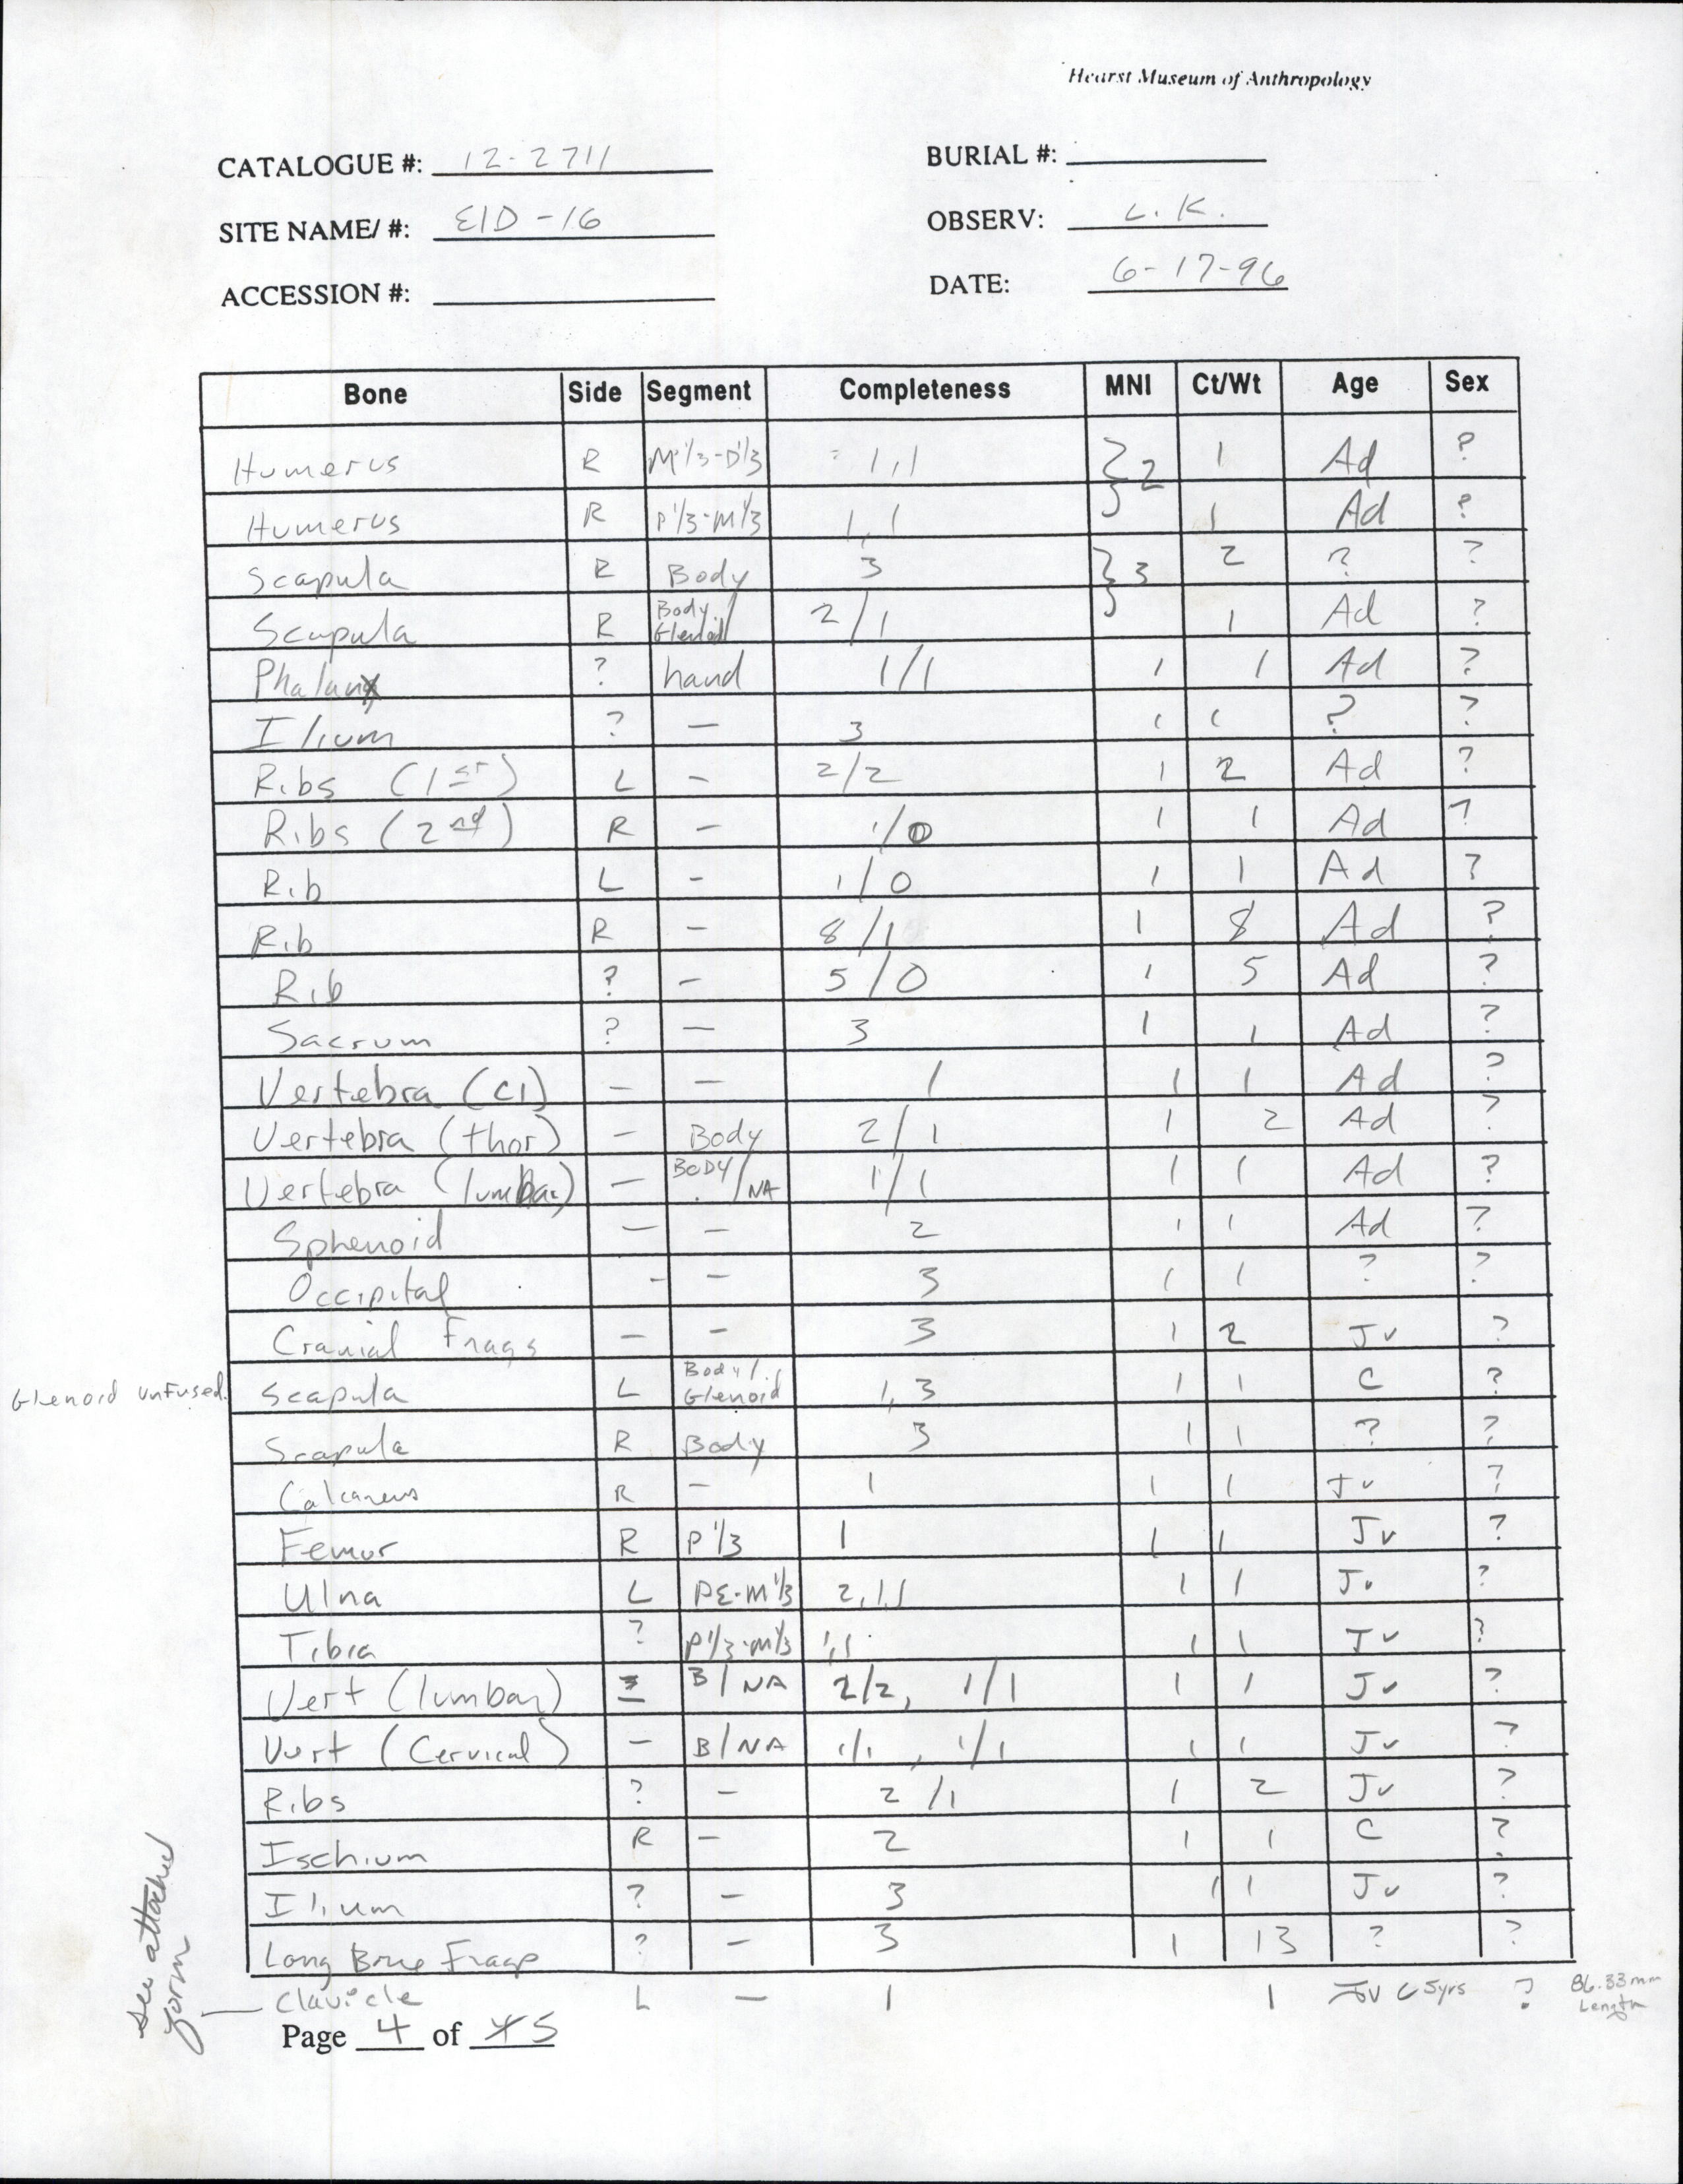 Hearst Museum of Anthropology
CATALOGUE #: 12-2711 BURIAL #:
SITE NAME/ #: EID-16 OBSERV: L.K.
ACCESSION #: DATE: 6-17-96
Bone Side Segment Completeness MNI Ct/Wt Age Sex
Humerus R M 1/3-D 1/3 1,1 } 2 1 Ad ?
Humerus R P 1/3-M 1/3 1,1 1 Ad ?
Scapula R Body 3 } 3 2 ? ?
Scapula R Body/Glenoid 2/1 1 Ad ?
Phalanx ? hand 1/1 1 1 Ad ?
Ilium ? — 3 1 1 ? ?
Ribs (1st) L - 2/2 1 2 Ad ?
Ribs (2nd) R - 1/0 1 1 Ad ?
Rib L - 1/0 1 1 Ad ?
Rib R - 8/1 1 8 Ad ?
Rib ? - 5/0 1 5 Ad ?
Sacrum ? — 3 1 1 Ad ?
Vertebra (C1) - - 1 1 1 Ad ?
Vertebra (thor) - Body 2/1 1 2 Ad ?
Vertebra (lumbar) - BODY/NA 1/1 1 1 Ad ?
Sphenoid - - 2 1 1 Ad ?
Occipital - - 3 1 1 ? ?
Cranial Frags - - 3 1 2 Jv ?
Glenoid unfused. Scapula L Body/Glenoid 1,3 1 1 C ?
Scapula R Body 3 1 1 ? ?
Calcaneus R - 1 1 1 Jv ?
Femur R P 1/3 1 1 1 Jv ?
Ulna L PE-M 1/3 2,1,1 1 1 Jv ?
Tibia ? P 1/3-M 1/3 1,1 1 1 Jv ?
Vert (lumbar) - B/NA 2/2, 1/1 1 1 Jv ?
Vert (Cervical) - B/NA 1/1, 1/1 1 1 Jv ?
Ribs ? - 2/1 1 2 Jv ?
Ischium R - 2 1 1 C ?
Ilium ? - 3 1 1 Jv ?
Long Bone Frags ? - 3 1 13 ? ?
see attached form — Clavicle L - 1 1 C 5yrs ? 86.33mm Length
Page 4 of 5